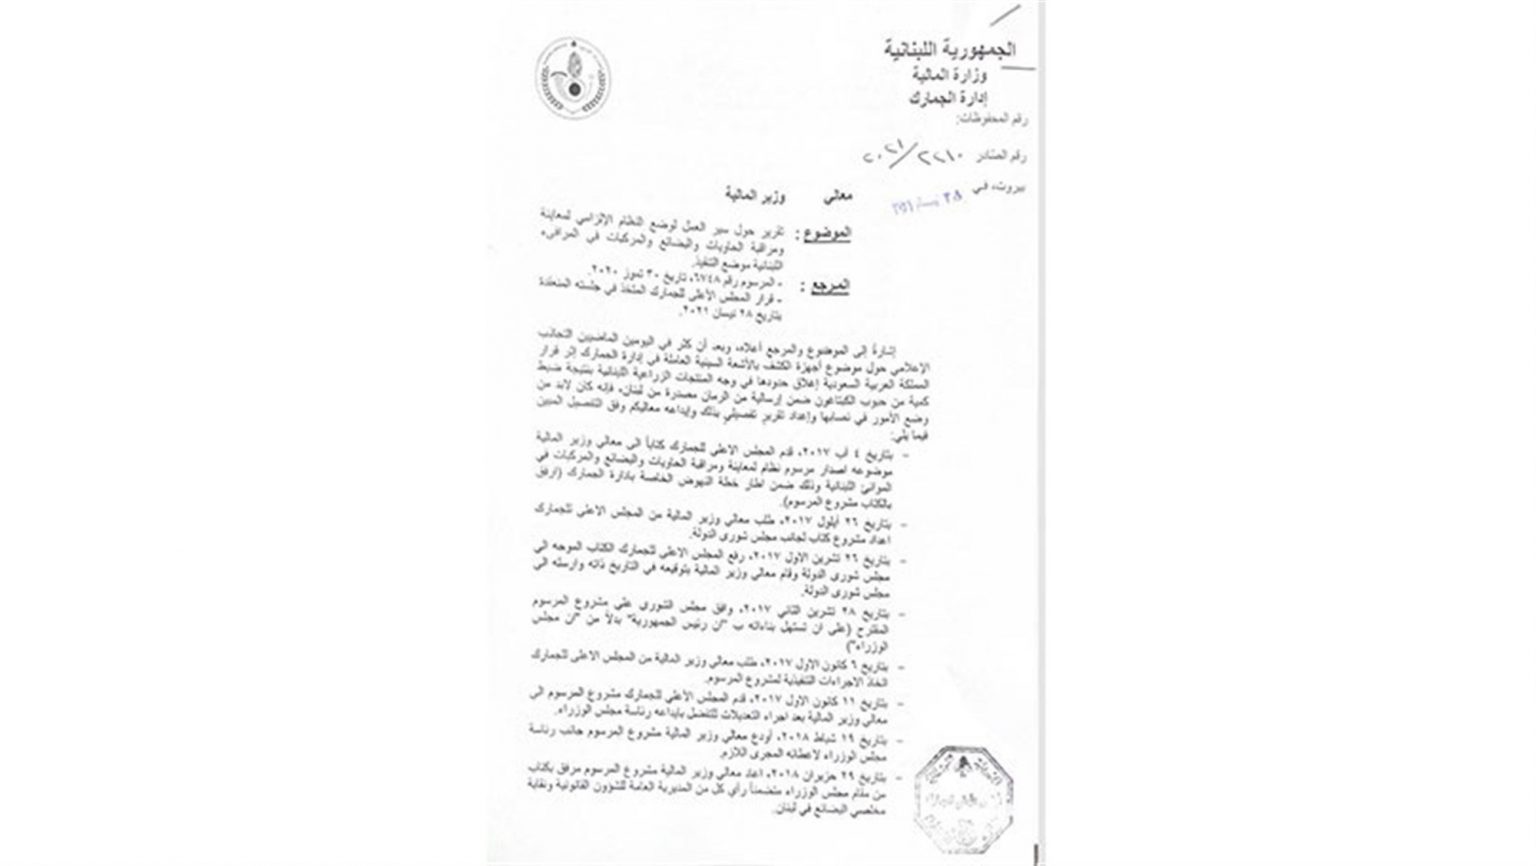 الجمهورية اللبنانية
وزارة المالية
إدارة الجمارك
رقم المحفوظات:
رقم الصادر ٢٢١٠/٢٠٢١
بيروت، في
معالي وزير المالية
الموضوع : تقرير حول سير العمل لوضع النظام الإلزامي لمعاينة
ومراقبة الحاويات والبضائع والمركبات في المرافىء
اللبنانية موضع التنفيذ.
المرجع : - المرسوم رقم ٦٧٤٨، تاريخ ٣٠ تموز ٢٠٢٠.
- قرار المجلس الأعلى للجمارك المتخذ في جلسته المنعقدة
بتاريخ ٢٨ نيسان ٢٠٢١.
إشارة إلى الموضوع والمرجع أعلاه، وبعد أن كثر في اليومين الماضيين التجاذب
الإعلامي حول موضوع أجهزة الكشف بالأشعة السينية العاملة في إدارة الجمارك إثر قرار
المملكة العربية السعودية إغلاق حدودها في وجه المنتجات الزراعية اللبنانية بنتيجة ضبط
كمية من حبوب الكبتاغون ضمن إرسالية من الرمان مصدرة من لبنان، فإنه كان لابد من
وضع الأمور في نصابها وإعداد تقرير تفصيلي بذلك وإيداعه معاليكم وفق التفصيل المبين
فيما يلي:
- بتاريخ ٤ آب ٢٠١٧، قدم المجلس الاعلى للجمارك كتاباً الى معالي وزير المالية
موضوعه اصدار مرسوم نظام لمعاينة ومراقبة الحاويات والبضائع والمركبات في
الموانئ اللبنانية وذلك ضمن اطار خطة النهوض الخاصة بادارة الجمارك (ارفق
بالكتاب مشروع المرسوم).
- بتاريخ ٢٦ أيلول ٢٠١٧، طلب معالي وزير المالية من المجلس الاعلى للجمارك
اعداد مشروع كتاب لجانب مجلس شورى الدولة.
- بتاريخ ٢٦ تشرين الاول ٢٠١٧، رفع المجلس الاعلى للجمارك الكتاب الموجه الى
مجلس شورى الدولة وقام معالي وزير المالية بتوقيعه في التاريخ ذاته وارسله الى
مجلس شورى الدولة.
- بتاريخ ٢٨ تشرين الثاني ٢٠١٧، وافق مجلس الشورى على مشروع المرسوم
المقترح (على ان تستهل بناءاته ب "ان رئيس الجمهورية" بدلاً من "ان مجلس
الوزراء")
- بتاريخ ٦ كانون الاول ٢٠١٧، طلب معالي وزير المالية من المجلس الاعلى للجمارك
اتخاذ الاجراءات التنفيذية لمشروع المرسوم.
- بتاريخ ١١ كانون الاول ٢٠١٧، قدم المجلس الأعلى للجمارك مشروع المرسوم الى
معالي وزير المالية بعد اجراء التعديلات للتفضل بايداعه رئاسة مجلس الوزراء.
- بتاريخ ١٩ شباط ٢٠١٨، أودع معالي وزير المالية مشروع المرسوم جانب رئاسة
مجلس الوزراء لاعطائه المجرى اللازم.
- بتاريخ ٢٩ حزيران ٢٠١٨، اعاد معالي وزير المالية مشروع المرسوم مرفق بكتاب
من مقام مجلس الوزراء متضمناً رأي كل من المديرية العامة للشؤون القانونية ونقابة
مخلصي البضائع في لبنان.